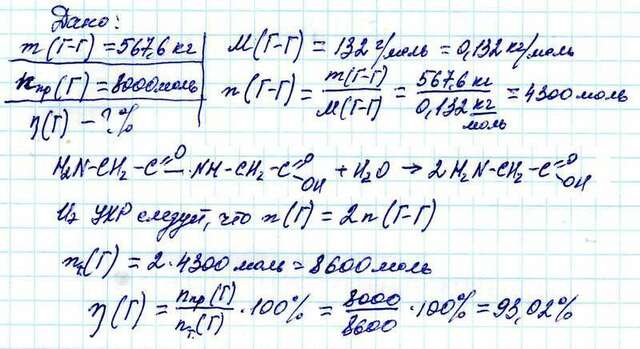 Дано:
m(Г-Г) = 567,6 кг
nпр(Г) = 8000 моль
η(Г) - ? %
M(Г-Г) = 132 г/моль = 0,132 кг/моль
n(Г-Г) = m(Г-Г)/M(Г-Г) = 567,6 кг/0,132 кг/моль = 4300 моль
H₂N-CH₂-C(=O)-NH-CH₂-C(=O)OH + H₂O → 2H₂N-CH₂-C(=O)OH
Из УХР следует, что n(Г) = 2n(Г-Г)
nт.(Г) = 2·4300 моль = 8600 моль
η(Г) = nпр(Г)/nт.(Г) · 100% = 8000/8600 · 100% = 93,02%